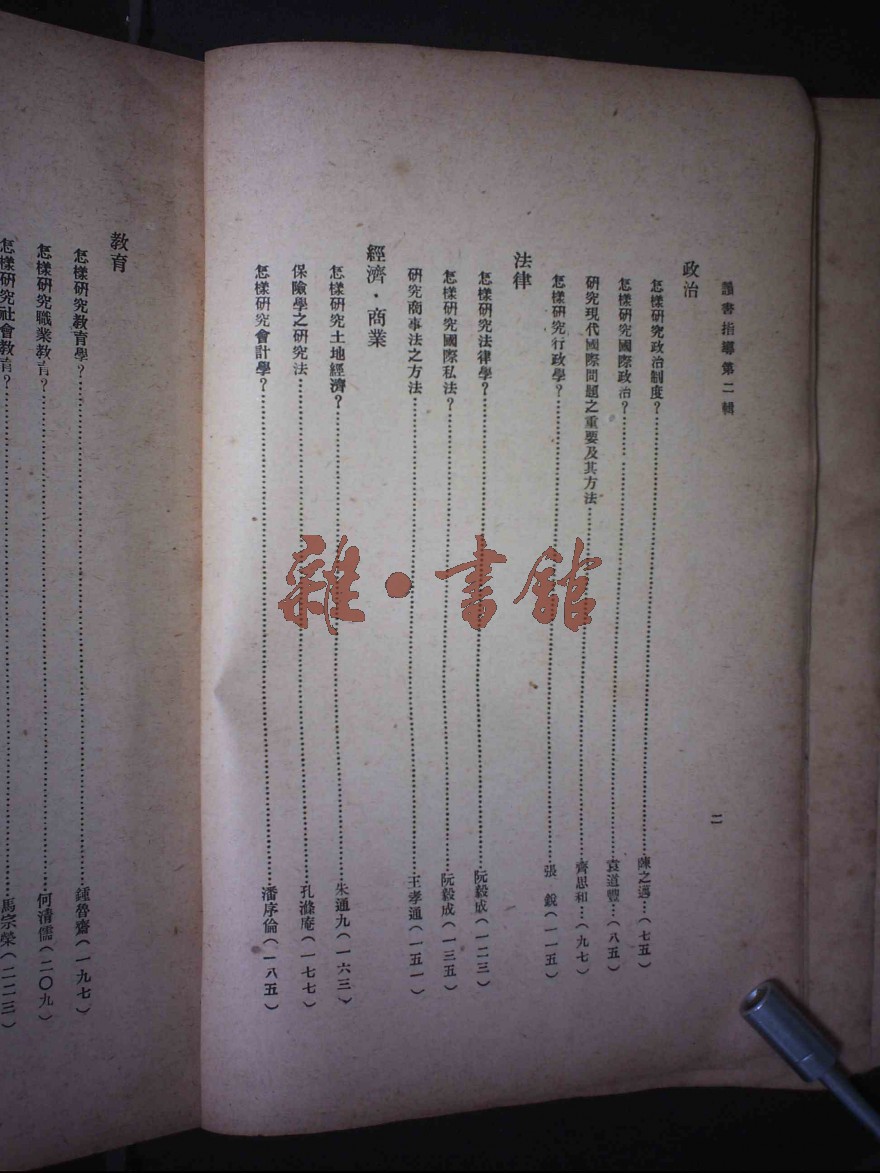 讀書指導第二輯
二
政治
怎樣研究政治制度?……陳之邁…(七五)
怎樣研究國際政治?……袁道豐…(八五)
研究現代國際問題之重要及其方法……齊思和…(九七)
怎樣研究行政學?……張銳(一一五)
法律
怎樣研究法律學?……阮毅成(一二三)
怎樣研究國際私法?……阮毅成(一三五)
研究商事法之方法……王孝通(一五一)
經濟·商業
怎樣研究土地經濟?……朱通九(一六三)
保險學之研究法……孔滌庵(一七七)
怎樣研究會計學?……潘序倫(一八五)
教育
怎樣研究教育學?……鍾魯齋(一九七)
怎樣研究職業教育?……何清儒(二〇九)
怎樣研究社會教育?……馬宗榮(二二三)
雜·書館